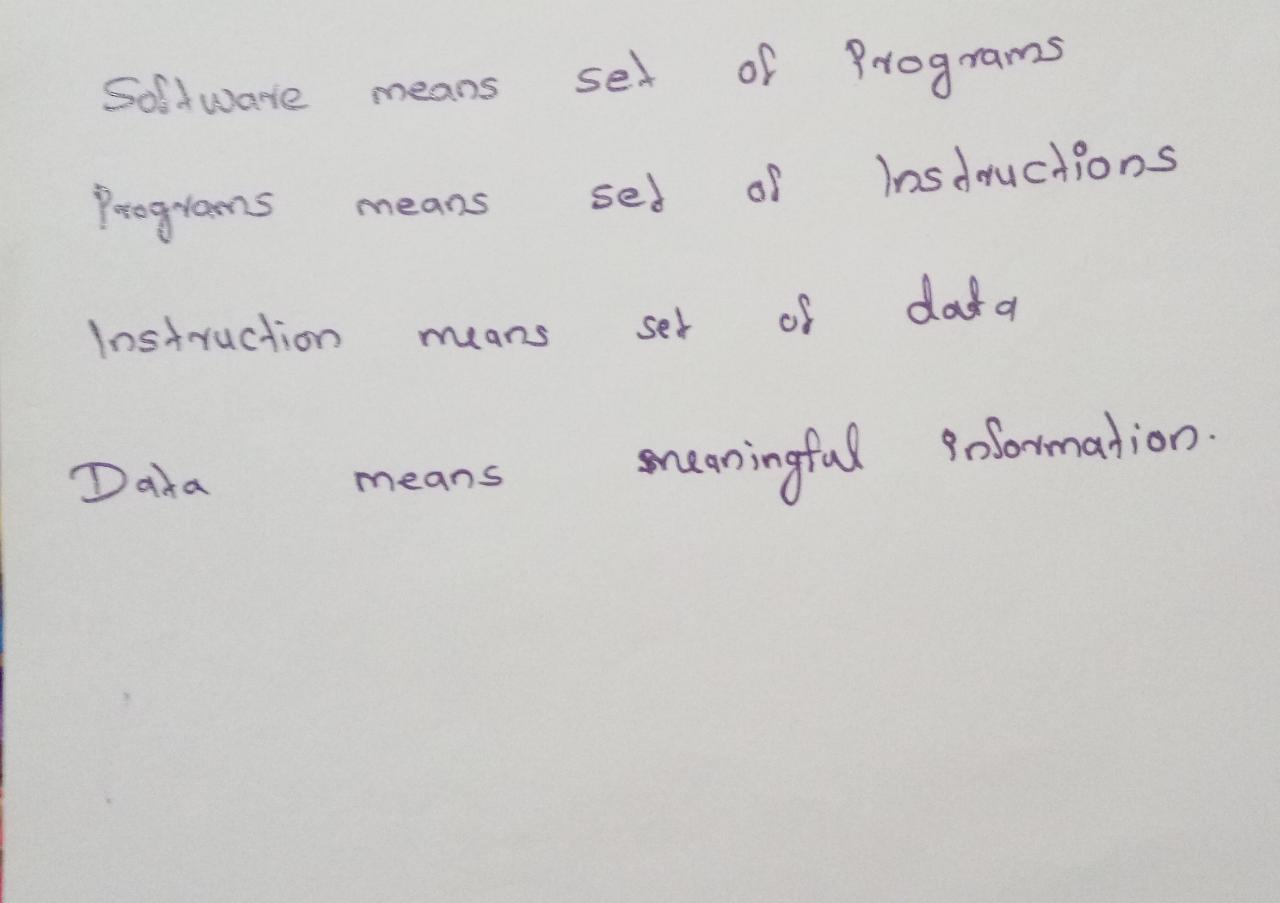 Software means set of Programs
Programs means set of Instructions
Instruction means set of data
Data means meaningful information.